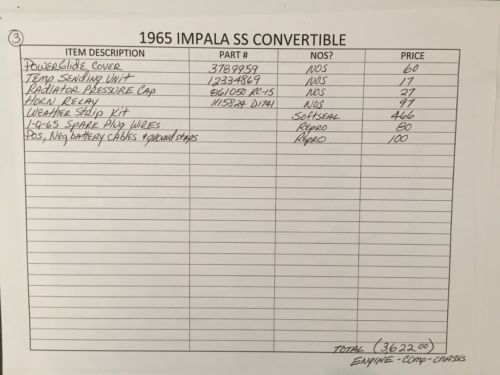 3
1965 IMPALA SS CONVERTIBLE
ITEM DESCRIPTION PART # NOS? PRICE
POWERGlide COVER 3789959 NOS 60
Temp Sending Unit 12334869 NOS 17
RADIATOR PRESSURE CAP RC-15 NOS 27
HORN RELAY 1115824 D1741 NOS 97
WEATHER STRIP Kit SOFTSEAL 466
1-Q-65 SPARK Plug WIRES REPRO 80
POS, Neg battery cables + ground straps REPRO 100
TOTAL (3622 00)
ENGINE - Comp - CHASSIS